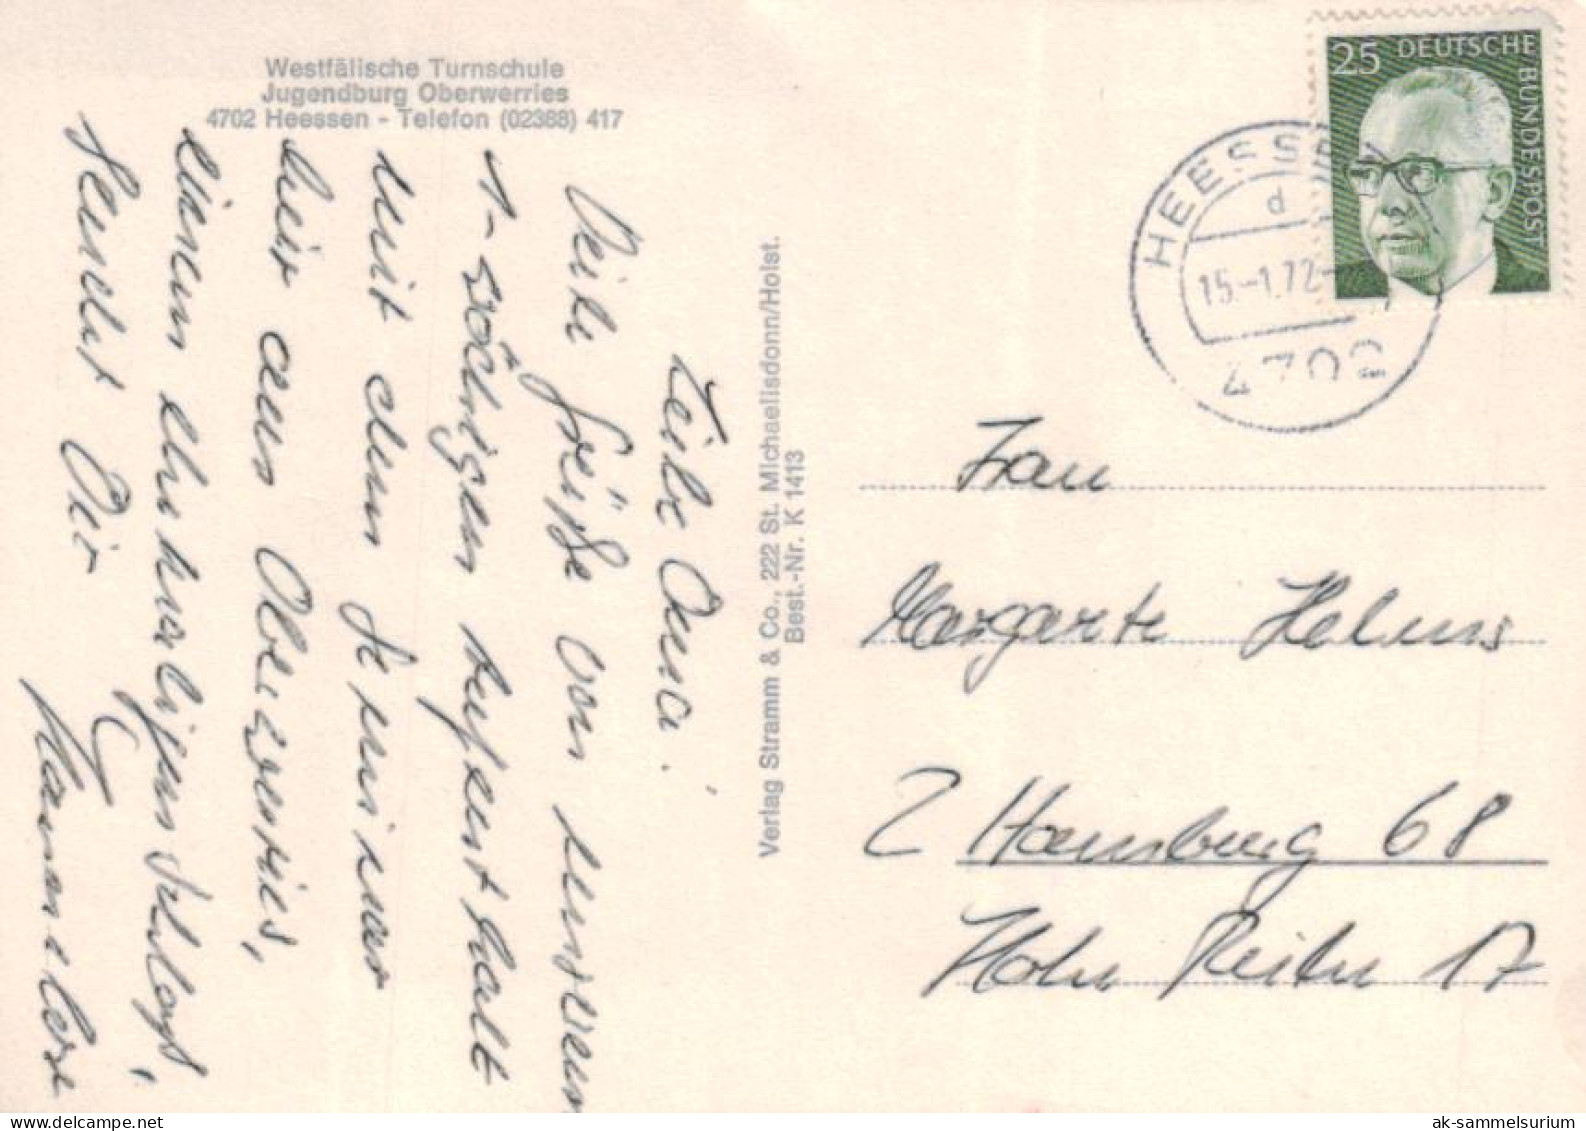 Westfälische Turnschule
Jugendburg Oberwerries
4702 Heessen - Telefon (02388) 417
Liebe Oma.
Viele Grüße von unserem
1-wöchigen Aufenthalt
mit dem Seminar
hier aus Oberwerries,
einem ehemaligen Schloß,
sendet Dir
Hannelore
Verlag Stramm & Co., 222 St. Michaelisdonn/Holst.
Best.-Nr. K 1413
25 DEUTSCHE BUNDESPOST
HEESS
d
15.-1.72-
4702
Frau
Margarte Helms
2 Hamburg 68
Hohe Reihe 17
delcampe.net
ak-sammelsurium